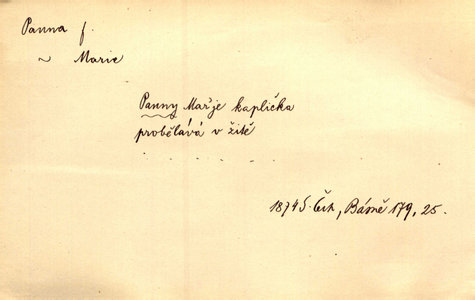 Panna f.
~ Marie
Panny Marje kaplička
probělává v žitě
. . . . . .
1874 S. Čech, Básně 179, 25.